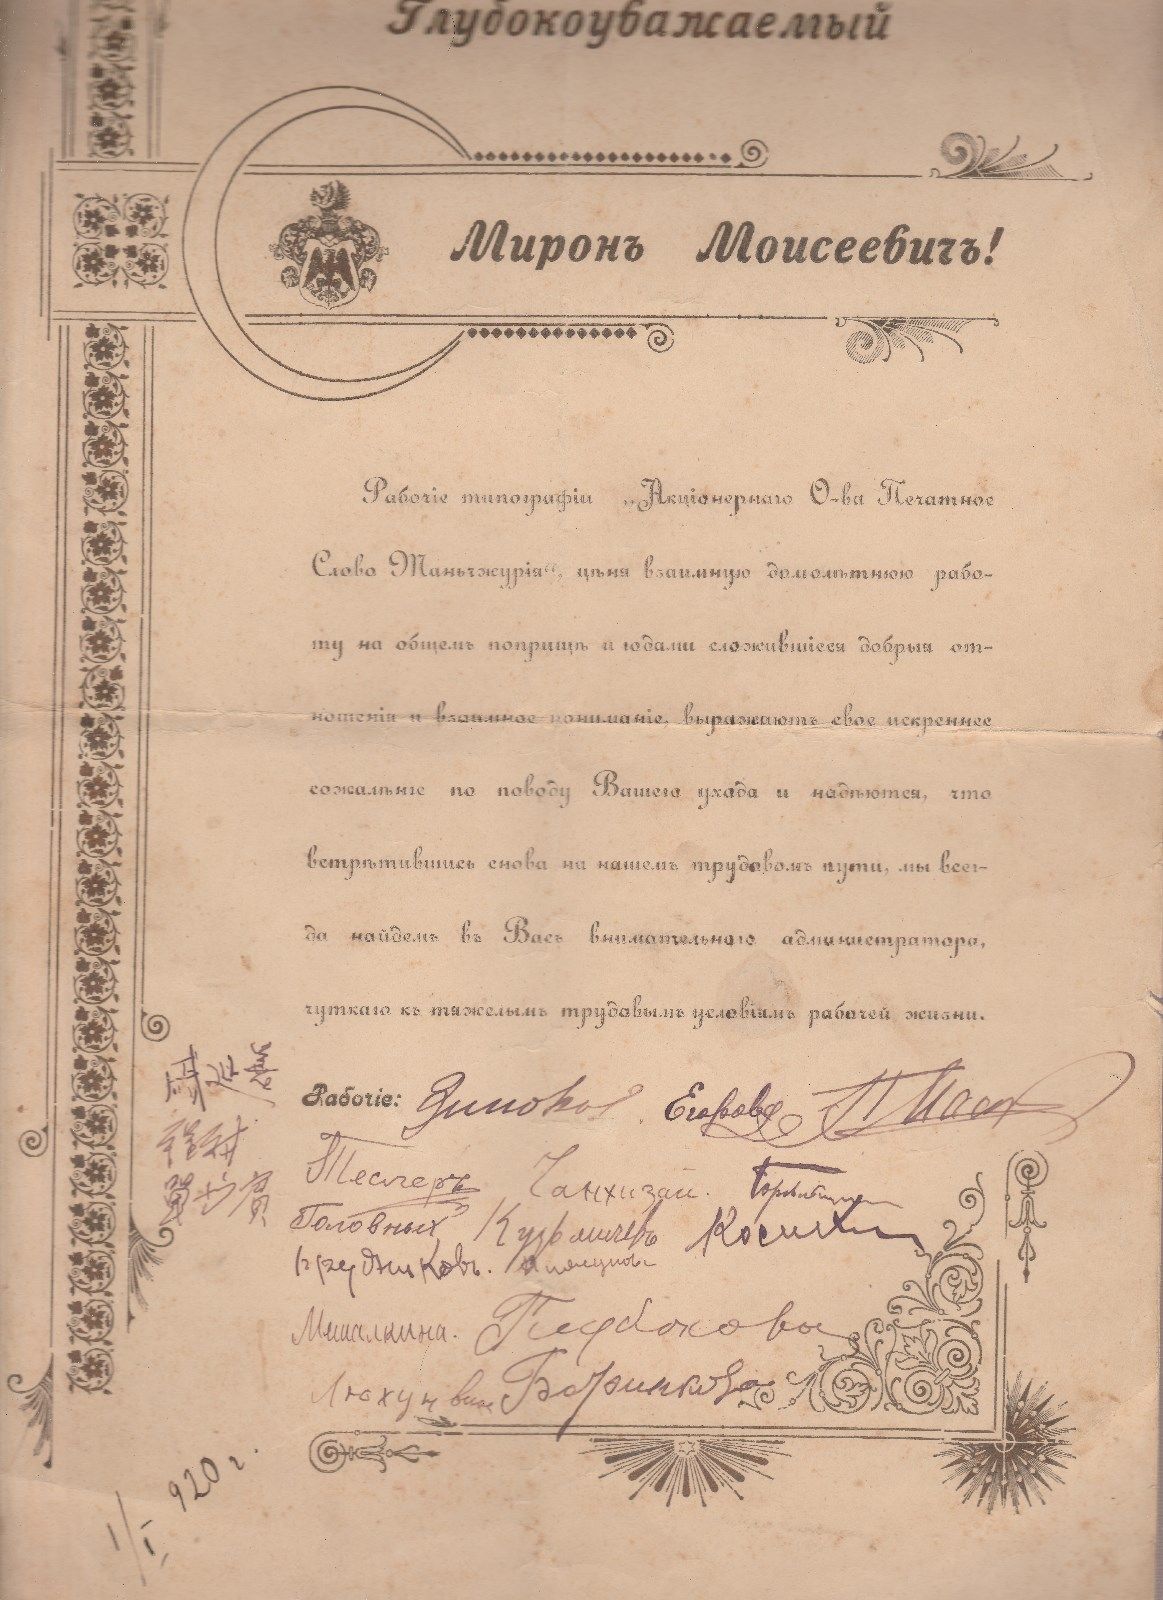 Глубокоуважаемый
Миронъ Моисеевичъ!
Рабочіе типографіи „Акціонернаго О-ва Печатное
Слово Маньчжурія“, цѣня взаимную долголѣтнюю рабо-
ту на общемъ поприщѣ и годами сложившіеся добрыя от-
ношенія и взаимное пониманіе, выражаютъ свое искреннее
сожалѣніе по поводу Вашего ухода и надѣются, что
встрѣтившись снова на нашемъ трудовомъ пути, мы всег-
да найдемъ въ Васъ внимательнаго администратора,
чуткаго къ тяжелымъ трудовымъ условіямъ рабочей жизни.
Рабочіе: Егорова
Чанхизай.
Головныхъ Кузьмичевъ
Мишалкина. Глубокова
1/I 920 г.